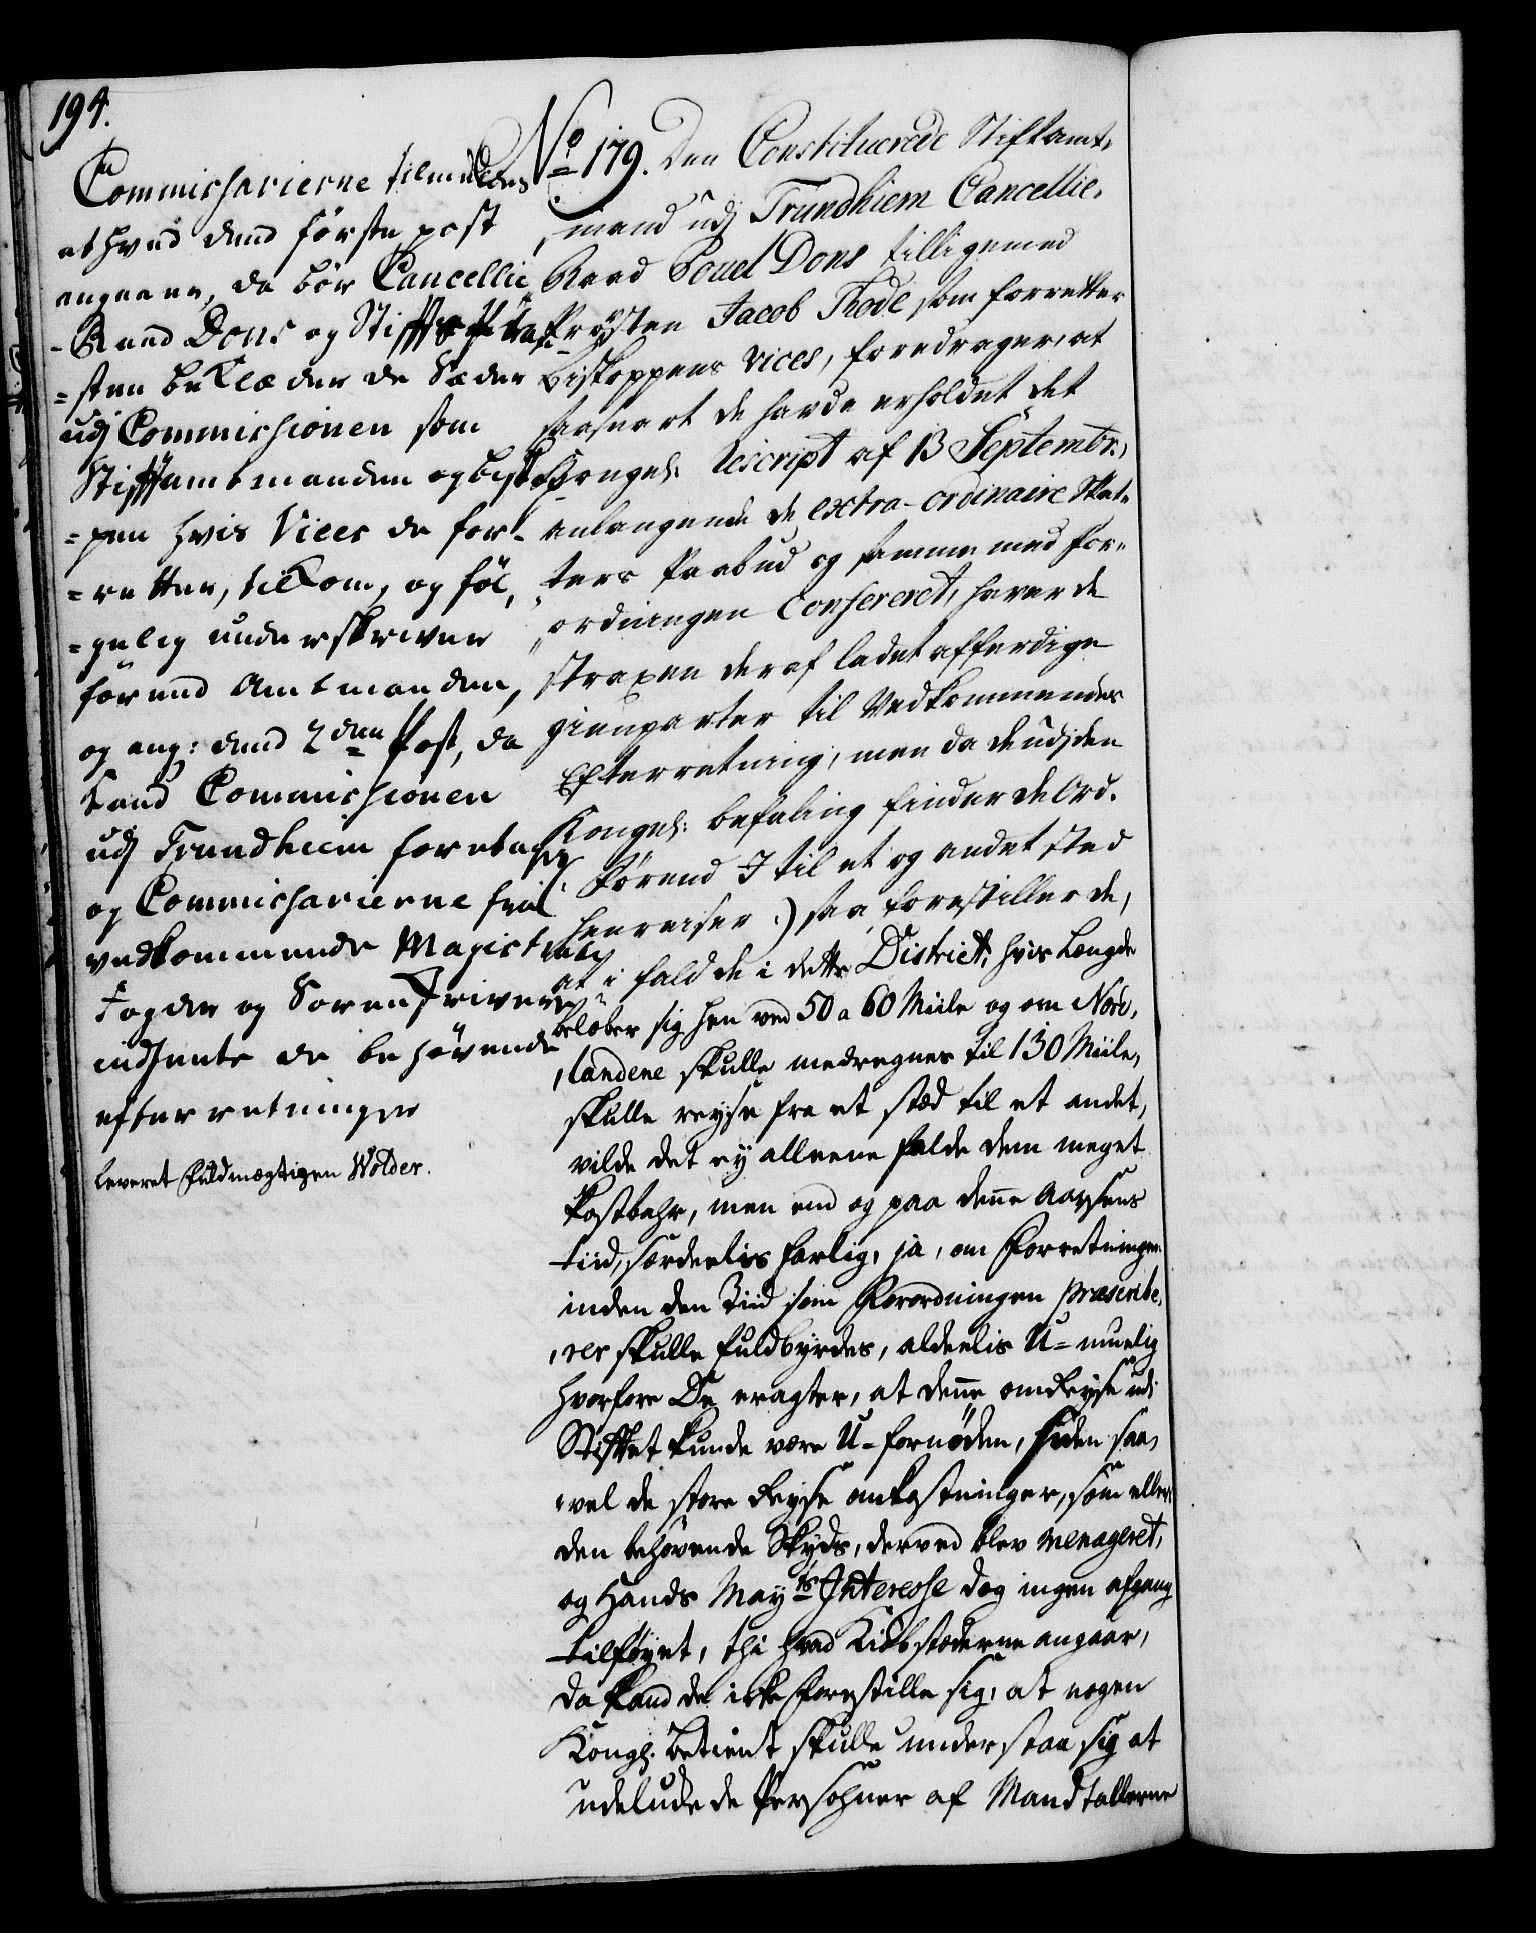 194.
Commissarierne tilmeldes
at hvad dend første post
angaaer, da bør Cancellie
-Raad Dons og Stiffts Prov-
=sten beklæder de Sæder
udj Commissionen som
Stifftamtmanden og bisko-
=pen hvis Vices de for-
=retter, tilkom, og føl,
=gelig underskriver
førend Amtmanden,
og ang: dend 2den Post, da
kand Commissionen
udj Trundhiem foretages
og Commissarierne fra
vedkommende Magistrat
Fogder og Sorenskriver
indhente de behøvende
efterretninger
leveret Fuldmægtigen Wolder.
No 179. Den Constituerede Stiftamt,
,mand udj Trundhiem Cancellie,
Raad Povel Dons tilligemed
Provsten Jacob Thode som forretter
Biskoppens vices, foredrager, at
saasnart de havde erholdet det
Kongel: rescript af 13 Septembr:,
anlangende de extra-ordinaire Skat,
ters Paabud og samme med For,
,ordningen Confereret, haver de
straxen deraf ladet afferdige
gienparter til Vedkommendes
Efterretning, men da de udj den
Kongel: befaling finder de Ord.
(: Førend I til et og andet sted
henreiser :) saa forestiller de,
at i fald de i dette District, hvis Længde
beløber sig hen ved 50 a 60 Miile og om Nord,
,landene skulle medregnes til 130 Miile,
skulle reyse fra et stæd til et andet,
vilde det ey alleene falde dem meget
kostbahr, men end og paa denne Aarsens
tiid, særdeelis farlig, ja, om Forretningen
inden den Tiid som Forordningen præscribe,
,rer skulle fuldbyrdes, aldeelis U-muelig
hvorfore De eragter, at denne omreyse udj
Stifftet kunde være U-fornøden, siden saa,
,vel de store Reyse omkostninger, som eller
den behøvende Skyds, derved blev menageret,
og Hands Mayts Interesse dog ingen afgang
tilføyet, thi hvad Kiøbstæderne angaar,
da kand de icke forestille sig, at nogen
Kongl. betient skulle understaa sig at
udelude de Persohner af Mandtallerne